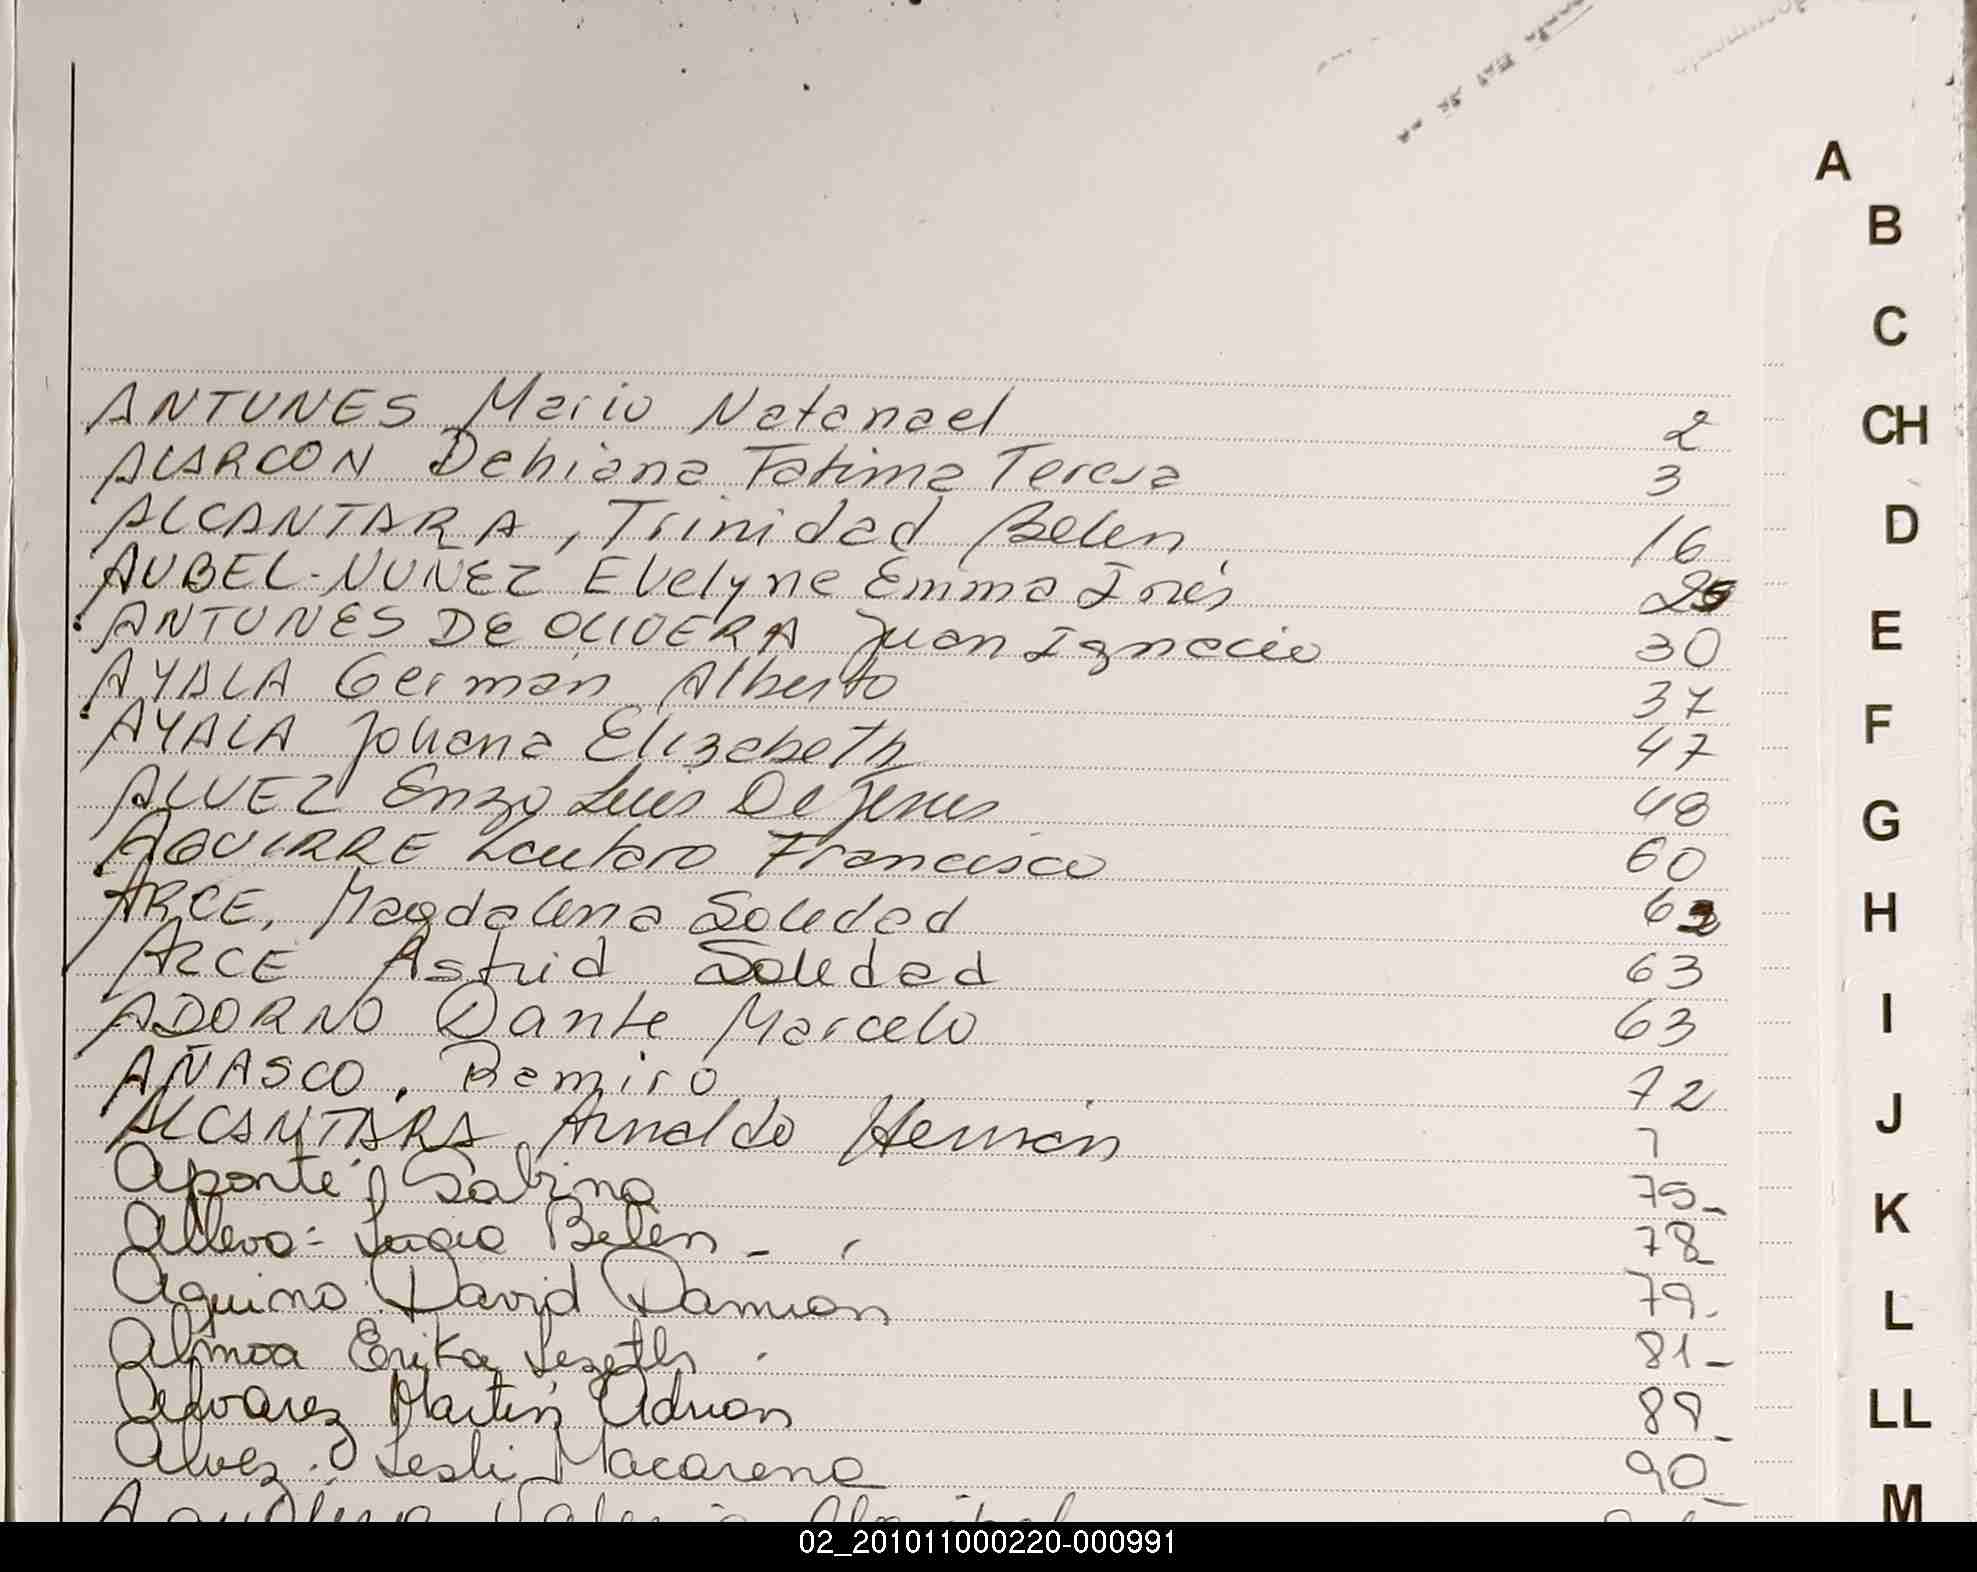 A
B
C
CH
D
E
F
G
H
I
J
K
L
LL
M
ANTUNES Mario Natanael 2
ALARCON Dehiana Fatima Teresa 3
ALCANTARA, Trinidad Belen 16
AUBEL-NUÑEZ Evelyne Emma Inés 25
ANTUNES DE OLIVERA Juan Ignacio 30
AYALA Germán Alberto 37
AYALA Johana Elizabeth 47
ALVEZ Enzo Luis De Jesus 48
AGUIRRE Lautaro Francisco 60
ARCE, Magdalena Soledad 62
ARCE Astrid Soledad 63
ADORNO Dante Marcelo 63
AÑASCO, Ramiro 72
ALCANTARA Arnaldo Hernán 7
Aponte, Sabina 75_
Belén - 78
Aquino David Damian 79.
Almoa Erika Lezeth 81_
Alvarez Martin Adrian 89_
Alvez. Lesli Macarena 90_
02_201011000220-000991